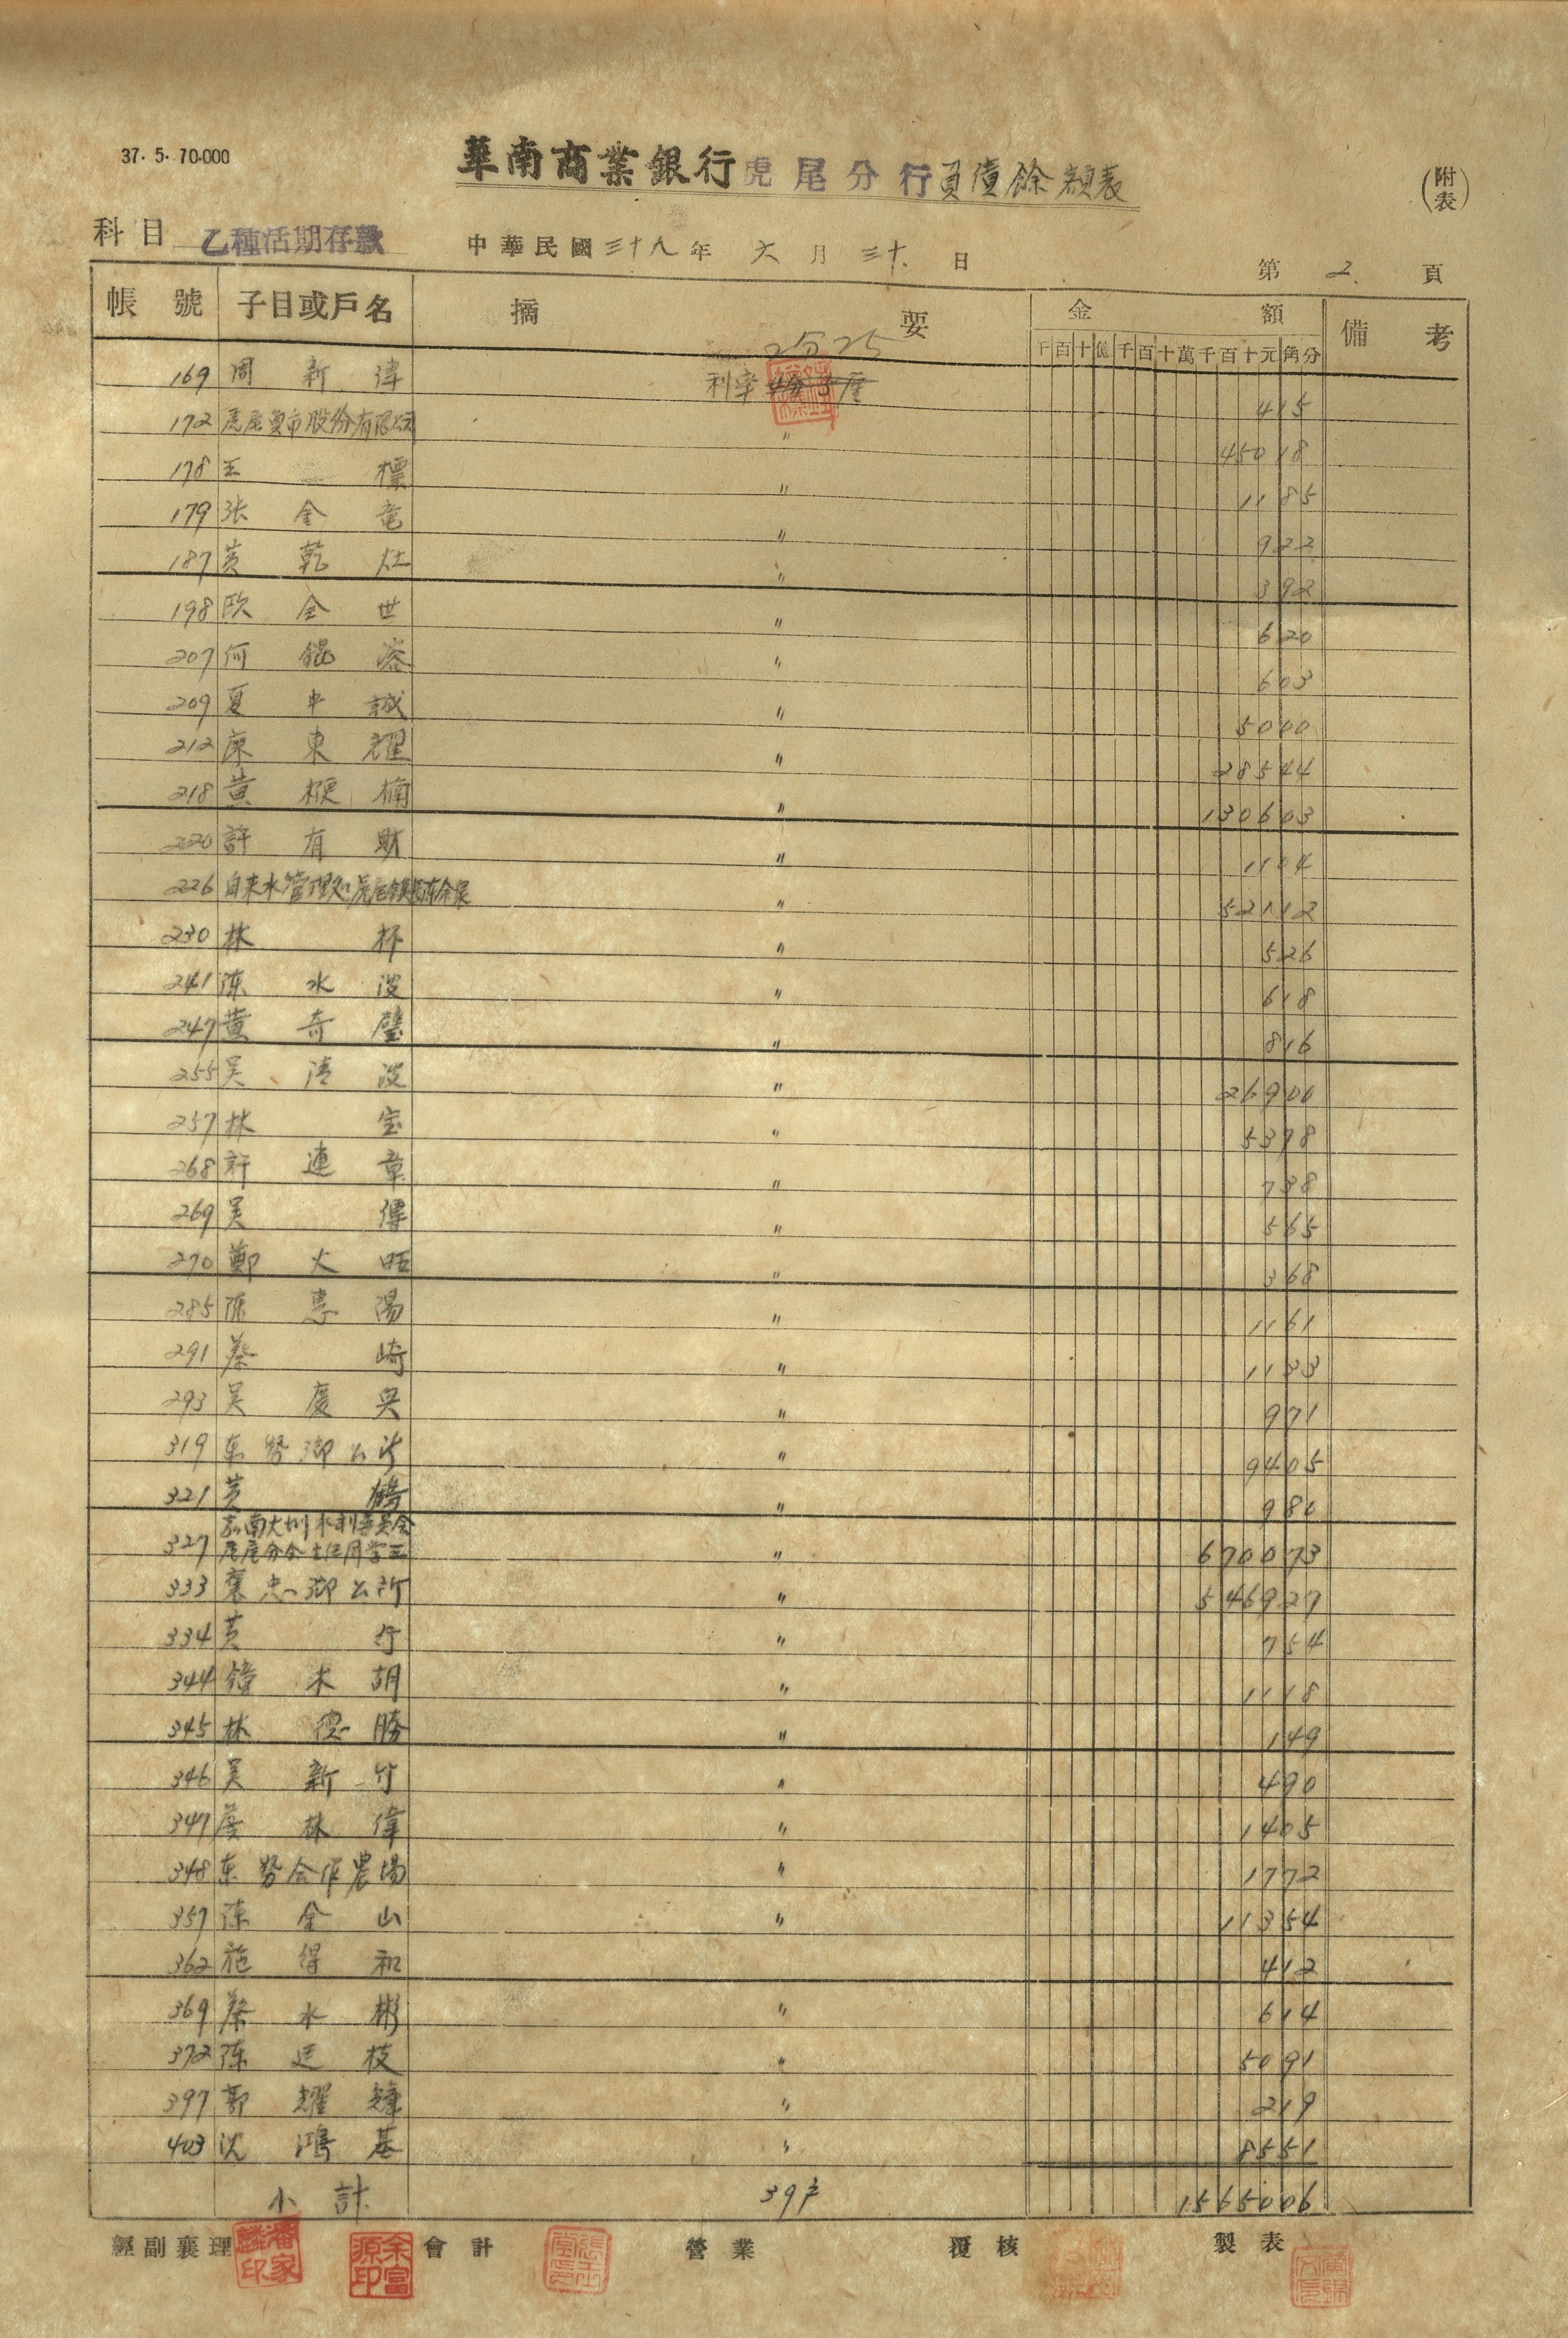 37. 5. 70.000
華南商業銀行虎尾分行負債餘額表
(附表)
科目 乙種活期存款 中華民國三十八年 六月三十日 第 2 頁
帳號 子目或戶名 摘要 金額 備考
千百十億千百十萬千百十元角分
2分25
169 周新 利率 415
172 虎尾 市股份有限公司 〃 45018
178 王標 〃 1185
179 张金竜 〃 922
187 黄乾灶 〃 392
198 欧金世 〃 620
207 何錕 〃 603
209 夏中誠 〃 5000
212 東耀 〃 28544
218 黄楩楠 〃 130603
220 許有財 〃 1104
226 自来水管理処虎尾 〃 52112
230 林杯 〃 526
241 陈水波 〃 618
247 黄奇璧 〃 816
255 吴清波 〃 26900
257 林宝 〃 5378
268 許連章 〃 738
269 吴傳 〃 565
270 鄭火旺 〃 368
285 陈惠陽 〃 1161
291 蔡崎 〃 1133
293 吴慶 〃 971
319 东势鄉公所 〃 9405
321 黄鶴 〃 980
327 嘉南大圳水利委員会
虎尾分会主任周 〃 670073
333 褒忠鄉公所 〃 546927
334 黄行 〃 754
344 木胡 〃 1118
345 林德勝 〃 149
346 吴新竹 〃 490
347 林偉 〃 1405
348 东势合作農場 〃 1772
357 陈金山 〃 11354
362 施得和 412
369 蔡水彬 〃 614
372 陈廷枝 〃 5091
397 郭耀 〃 219
403 沈鴻基 〃 8551
小計 39户 1565006
經副襄理 會計 營業 覆核 製表
潘家麟印
余富源印